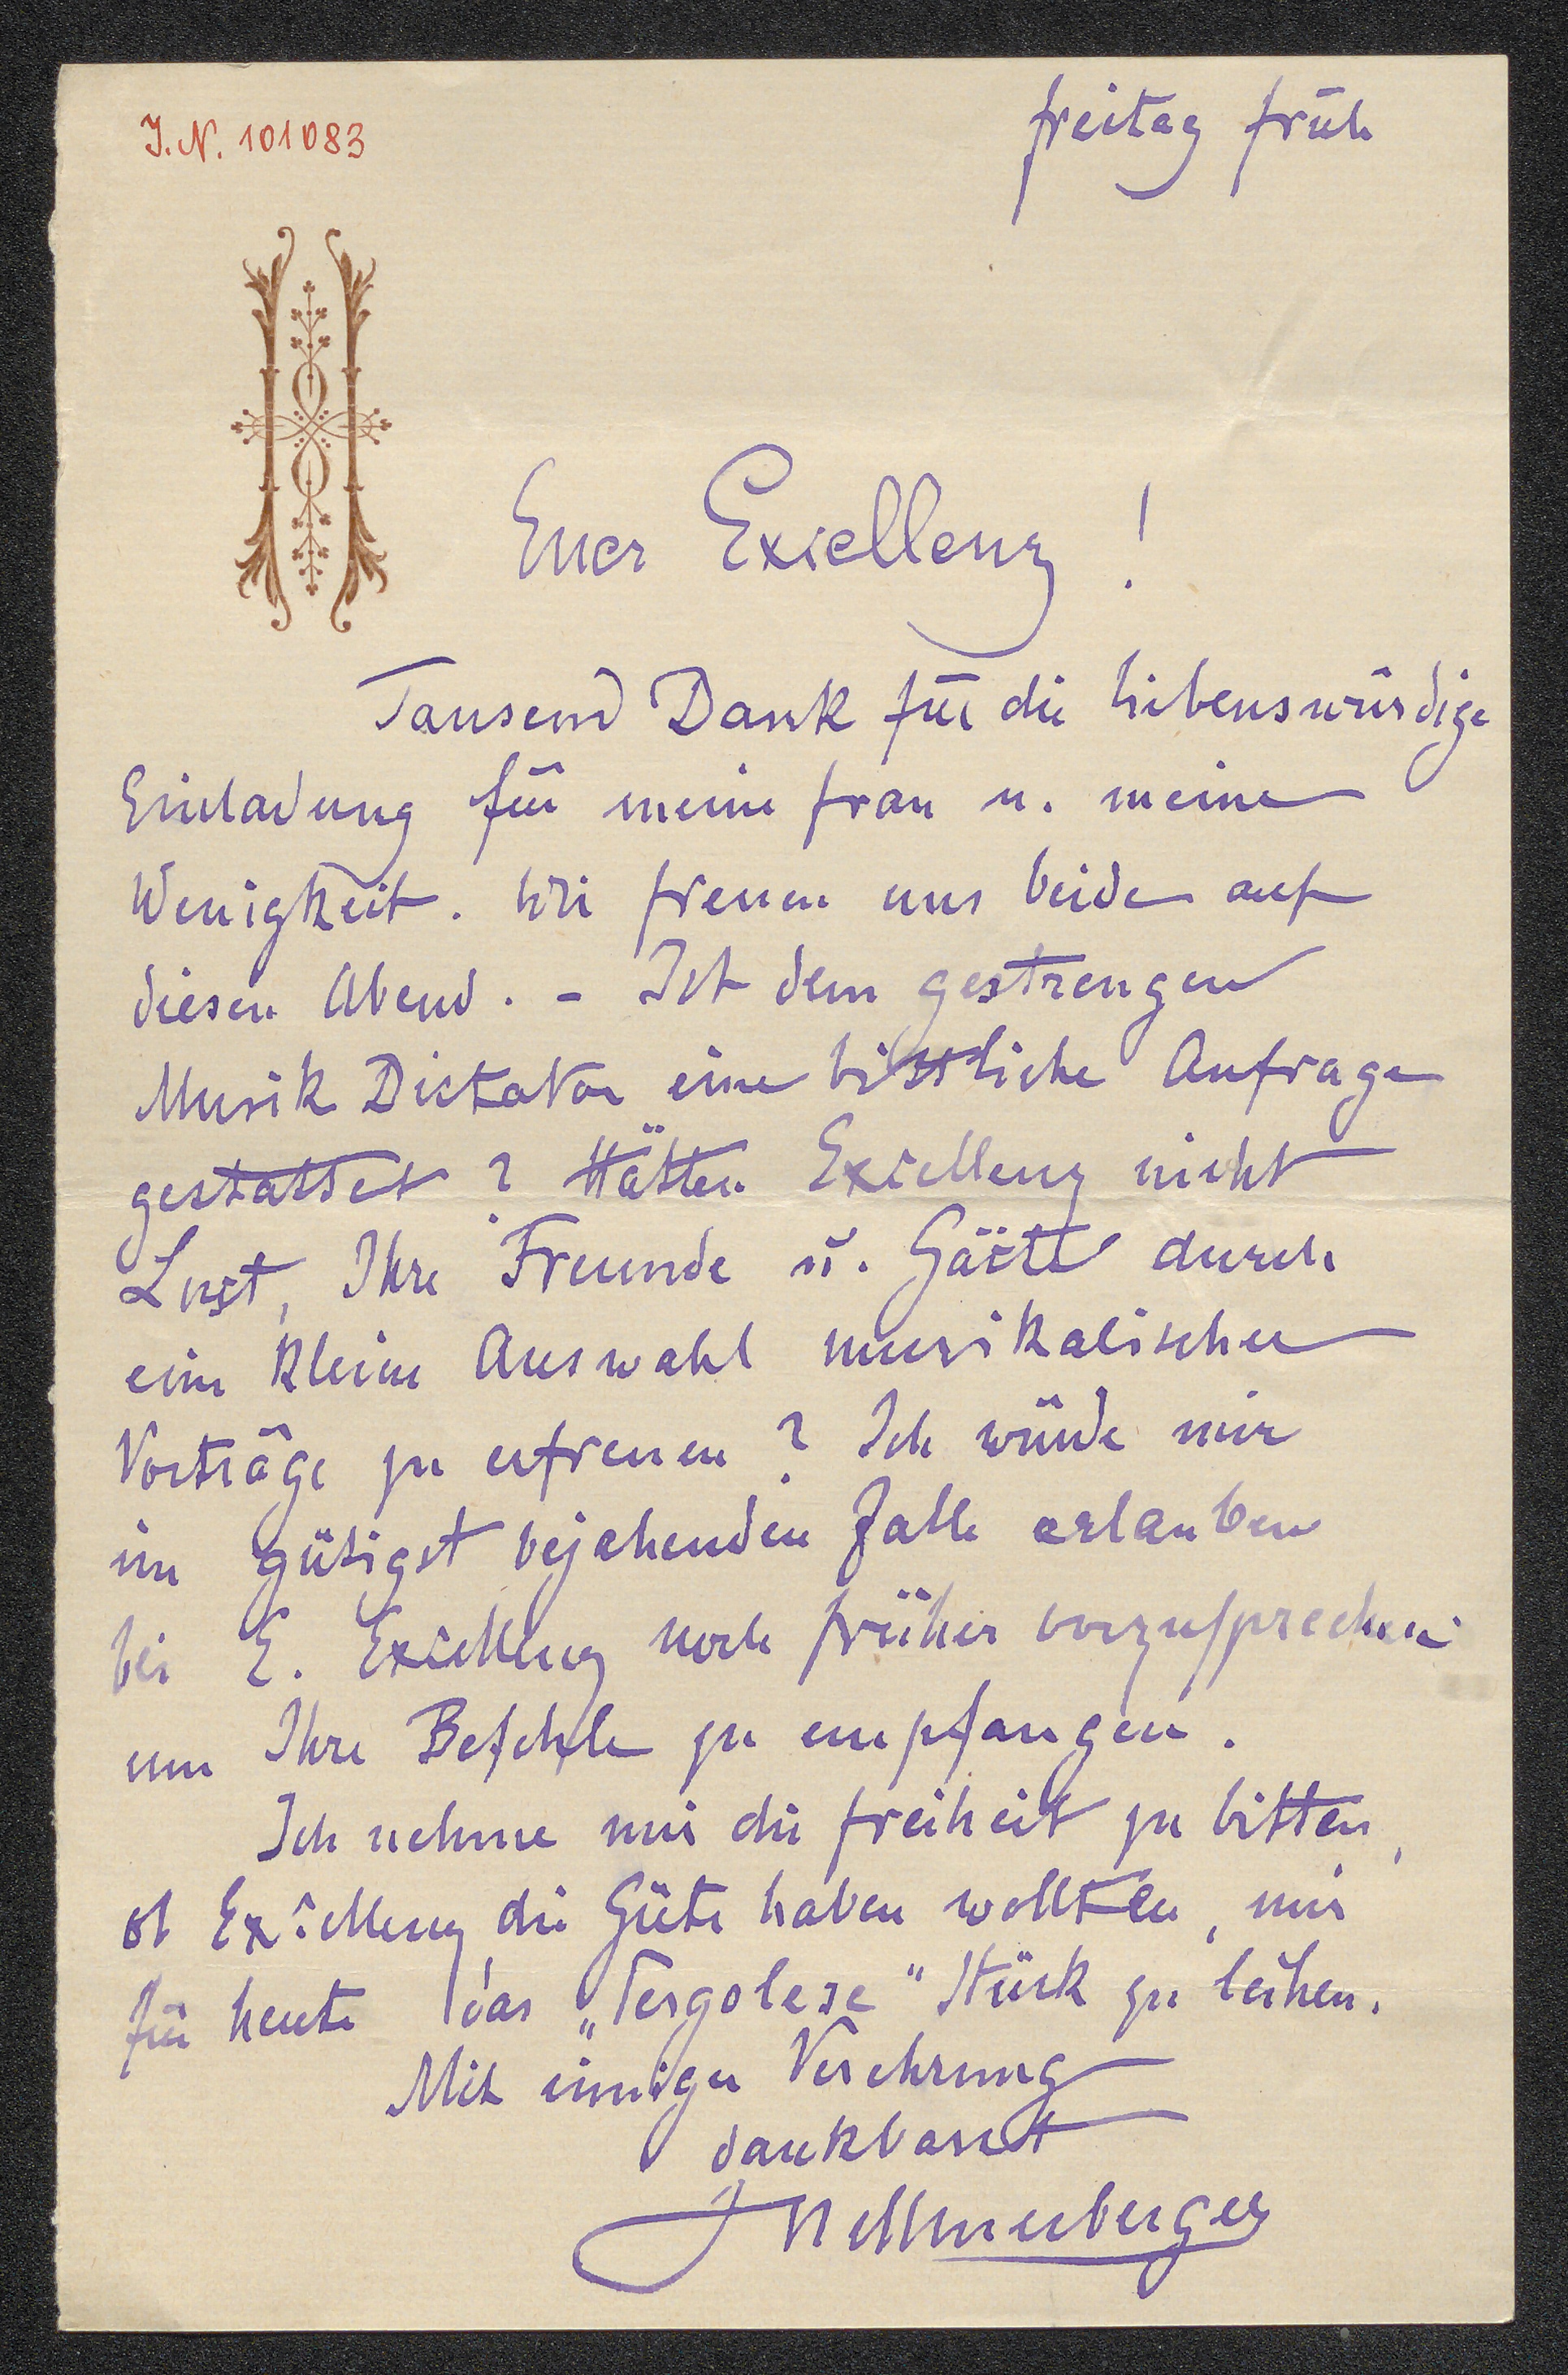 J.N. 101083
Freitag früh
H
Euer Excellenz!
Tausend Dank für die liebenswürdige
Einladung für meine Frau u. meine
Wenigkeit. Wir freuen uns beide auf
diesen Abend. - Ist dem gestrengen
Musik Dictator eine bittliche Anfrage
gestattet? Hätten Excellenz nicht
Lust, Ihre Freunde u. Gäste durch
eine kleine Auswahl musikalischer
Vorträge zu erfreuen? Ich würde mir
im gütigst bejahenden Falle erlauben
bei E. Excellenz noch früher vorzusprechen
um Ihre Befehle zu empfangen.
Ich nehme mir die Freiheit zu bitten,
ob Excellenz die Güte haben wollten, mir
für heute das „Pergolese" Stück zu leihen.
Mit inniger Verehrung
dankbarst
J Hellmesberger